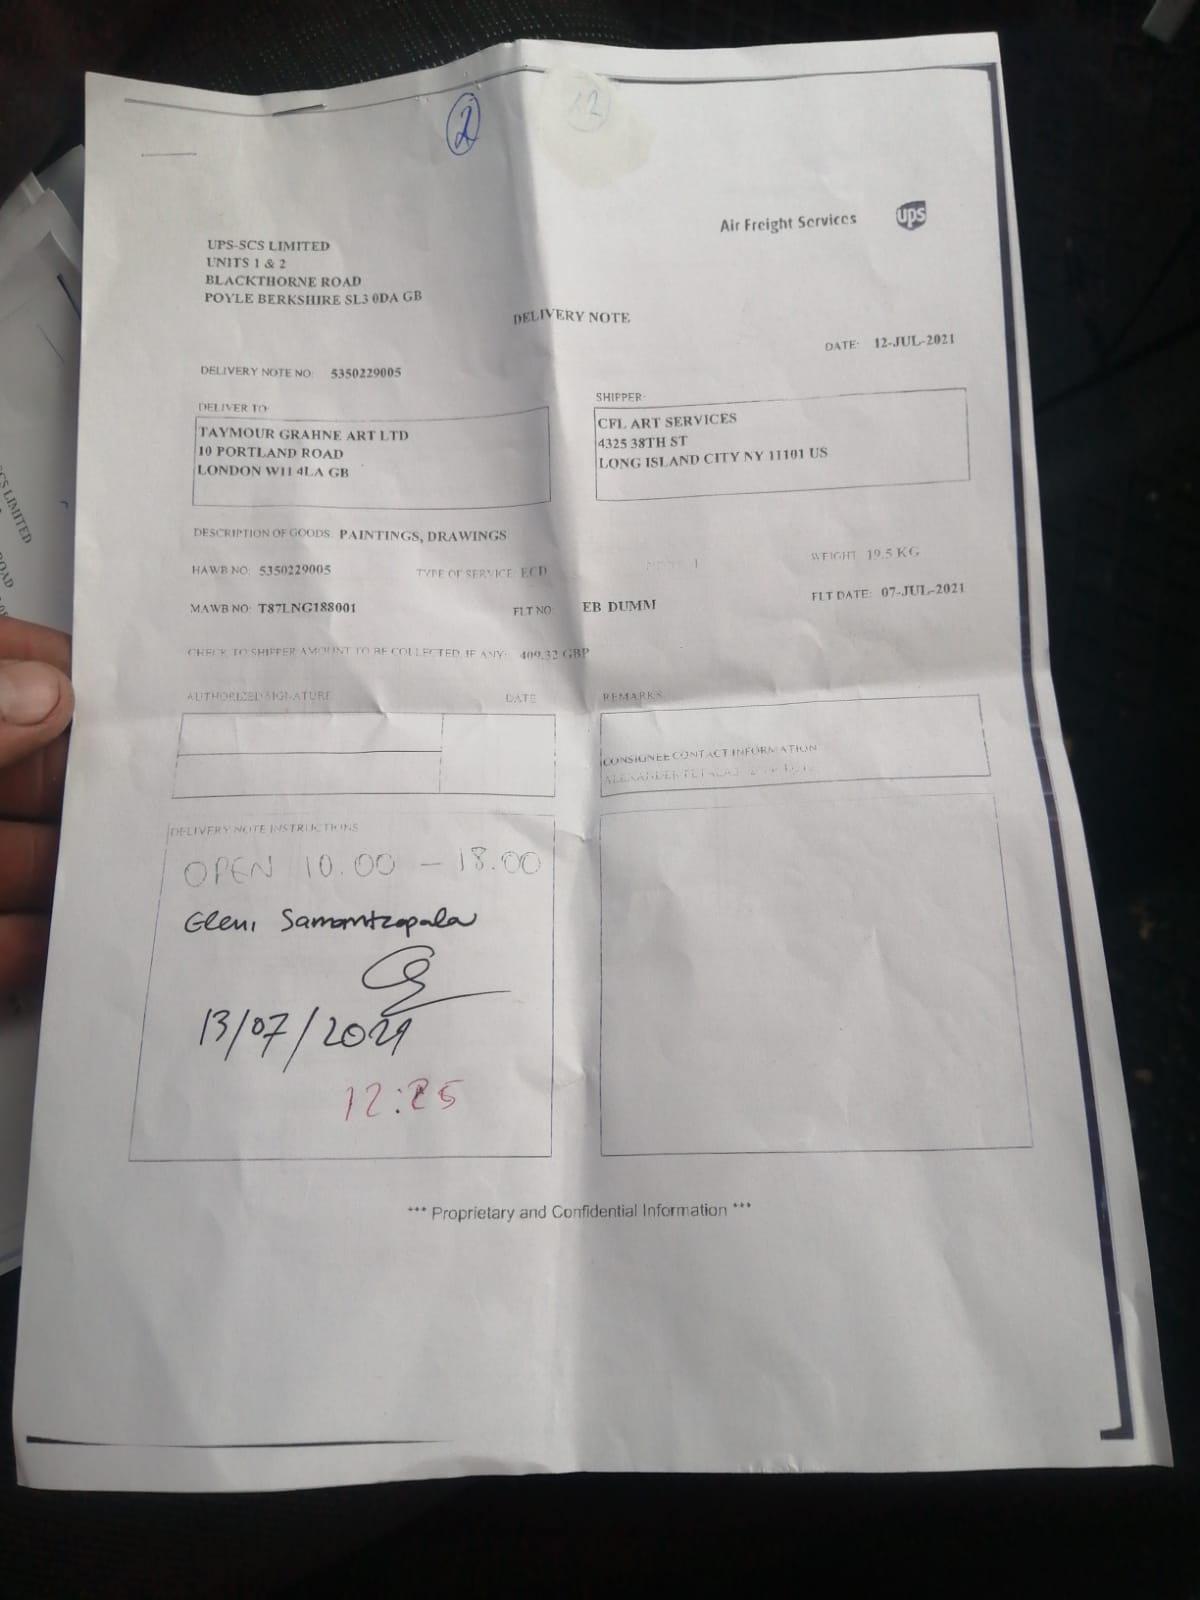 2
12
Air Freight Services ups
UPS-SCS LIMITED
UNITS 1 & 2
BLACKTHORNE ROAD
POYLE BERKSHIRE SL3 0DA GB
DELIVERY NOTE
DATE: 12-JUL-2021
DELIVERY NOTE NO: 5350229005
DELIVER TO
TAYMOUR GRAHNE ART LTD
10 PORTLAND ROAD
LONDON W11 4LA GB
SHIPPER:
CFL ART SERVICES
4325 38TH ST
LONG ISLAND CITY NY 11101 US
DESCRIPTION OF GOODS: PAINTINGS, DRAWINGS
HAWB NO: 5350229005 TYPE OF SERVICE: ECD 1 WEIGHT: 19.5 KG
MAWB NO: T87LNG188001 FLT NO: EB DUMM FLT DATE: 07-JUL-2021
CHECK TO SHIPPER AMOUNT TO BE COLLECTED, IF ANY: 409.32 GBP
AUTHORIZED SIGNATURE DATE
REMARKS
CONSIGNEE CONTACT INFORMATION
ALEXANDER
DELIVERY NOTE INSTRUCTIONS
OPEN 10.00 - 18.00
Eleni Samantzopala
13/07/2021
12:25
*** Proprietary and Confidential Information ***
SCS LIMITED
ROAD